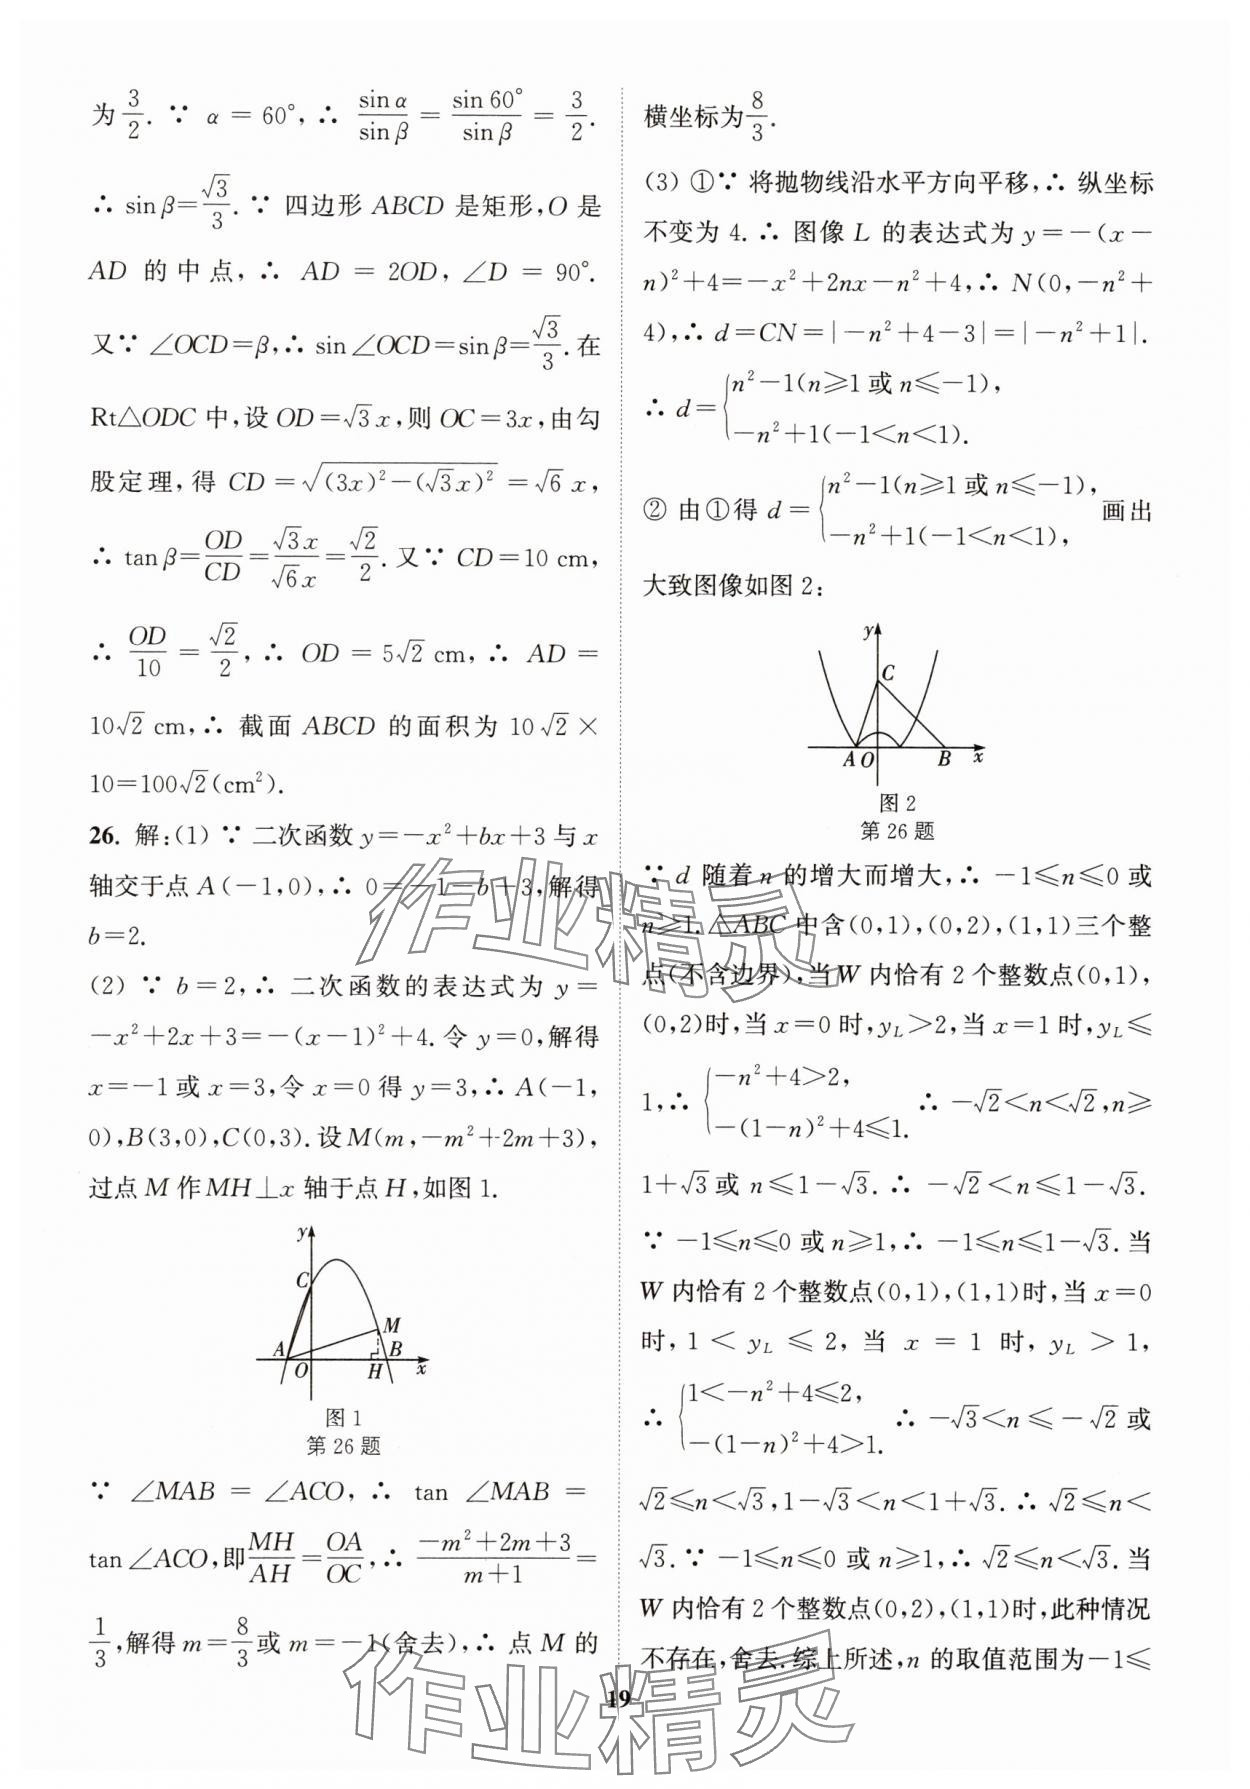 为3/2. ∵ α = 60°, ∴ sinα/sinβ = sin60°/sinβ = 3/2.
∴ sinβ=√3/3. ∵ 四边形 ABCD 是矩形,O 是
AD 的中点, ∴ AD = 2OD, ∠D = 90°.
又∵ ∠OCD=β,∴ sin∠OCD=sinβ=√3/3. 在
Rt△ODC 中,设 OD=√3x,则 OC=3x,由勾
股定理,得 CD=√((3x)²-(√3x)²)=√6x,
∴ tanβ=OD/CD=√3x/√6x=√2/2. 又∵ CD=10 cm,
∴ OD/10 = √2/2, ∴ OD = 5√2 cm, ∴ AD =
10√2 cm,∴ 截面 ABCD 的面积为 10√2×
10=100√2(cm²).
26. 解:(1) ∵ 二次函数 y=-x²+bx+3 与 x
轴交于点 A(-1,0),∴ 0=-1-b+3,解得
b=2.
(2) ∵ b=2,∴ 二次函数的表达式为 y=
-x²+2x+3=-(x-1)²+4. 令 y=0,解得
x=-1 或 x=3,令 x=0 得 y=3,∴ A(-1,
0),B(3,0),C(0,3). 设 M(m,-m²+2m+3),
过点 M 作 MH⊥x 轴于点 H,如图 1.
y
C
M
A
O
H
B
x
图 1
第 26 题
∵ ∠MAB = ∠ACO, ∴ tan ∠MAB =
tan∠ACO,即MH/AH=OA/OC,∴ (-m²+2m+3)/(m+1)=
1/3,解得 m=8/3或 m=-1(舍去),∴ 点 M 的
横坐标为8/3.
(3) ①∵ 将抛物线沿水平方向平移,∴ 纵坐标
不变为 4. ∴ 图像 L 的表达式为 y=-(x-
n)²+4=-x²+2nx-n²+4,∴ N(0,-n²+
4),∴ d=CN=|-n²+4-3|=|-n²+1|.
∴ d={n²-1(n≥1 或 n≤-1),
-n²+1(-1<n<1).
② 由①得 d={n²-1(n≥1 或 n≤-1),
-n²+1(-1<n<1), 画出
大致图像如图 2:
y
C
A
O
B
x
图 2
第 26 题
∵ d 随着 n 的增大而增大,∴ -1≤n≤0 或
n≥1. △ABC 中含(0,1),(0,2),(1,1)三个整
点(不含边界),当W 内恰有 2 个整数点(0,1),
(0,2)时,当 x=0 时,yL>2,当 x=1 时,yL≤
1,∴ {-n²+4>2,
-(1-n)²+4≤1. ∴ -√2<n<√2,n≥
1+√3或 n≤1-√3. ∴ -√2<n≤1-√3.
∵ -1≤n≤0 或 n≥1,∴ -1≤n≤1-√3. 当
W 内恰有 2 个整数点(0,1),(1,1)时,当 x=0
时, 1 < yL ≤ 2, 当 x = 1 时, yL > 1,
∴ {1<-n²+4≤2,
-(1-n)²+4>1. ∴ -√3<n≤-√2 或
√2≤n<√3,1-√3<n<1+√3. ∴ √2≤n<
√3. ∵ -1≤n≤0 或 n≥1,∴ √2≤n<√3. 当
W 内恰有 2 个整数点(0,2),(1,1)时,此种情况
不存在,舍去. 综上所述,n 的取值范围为-1≤
19
作业精灵
作业精灵